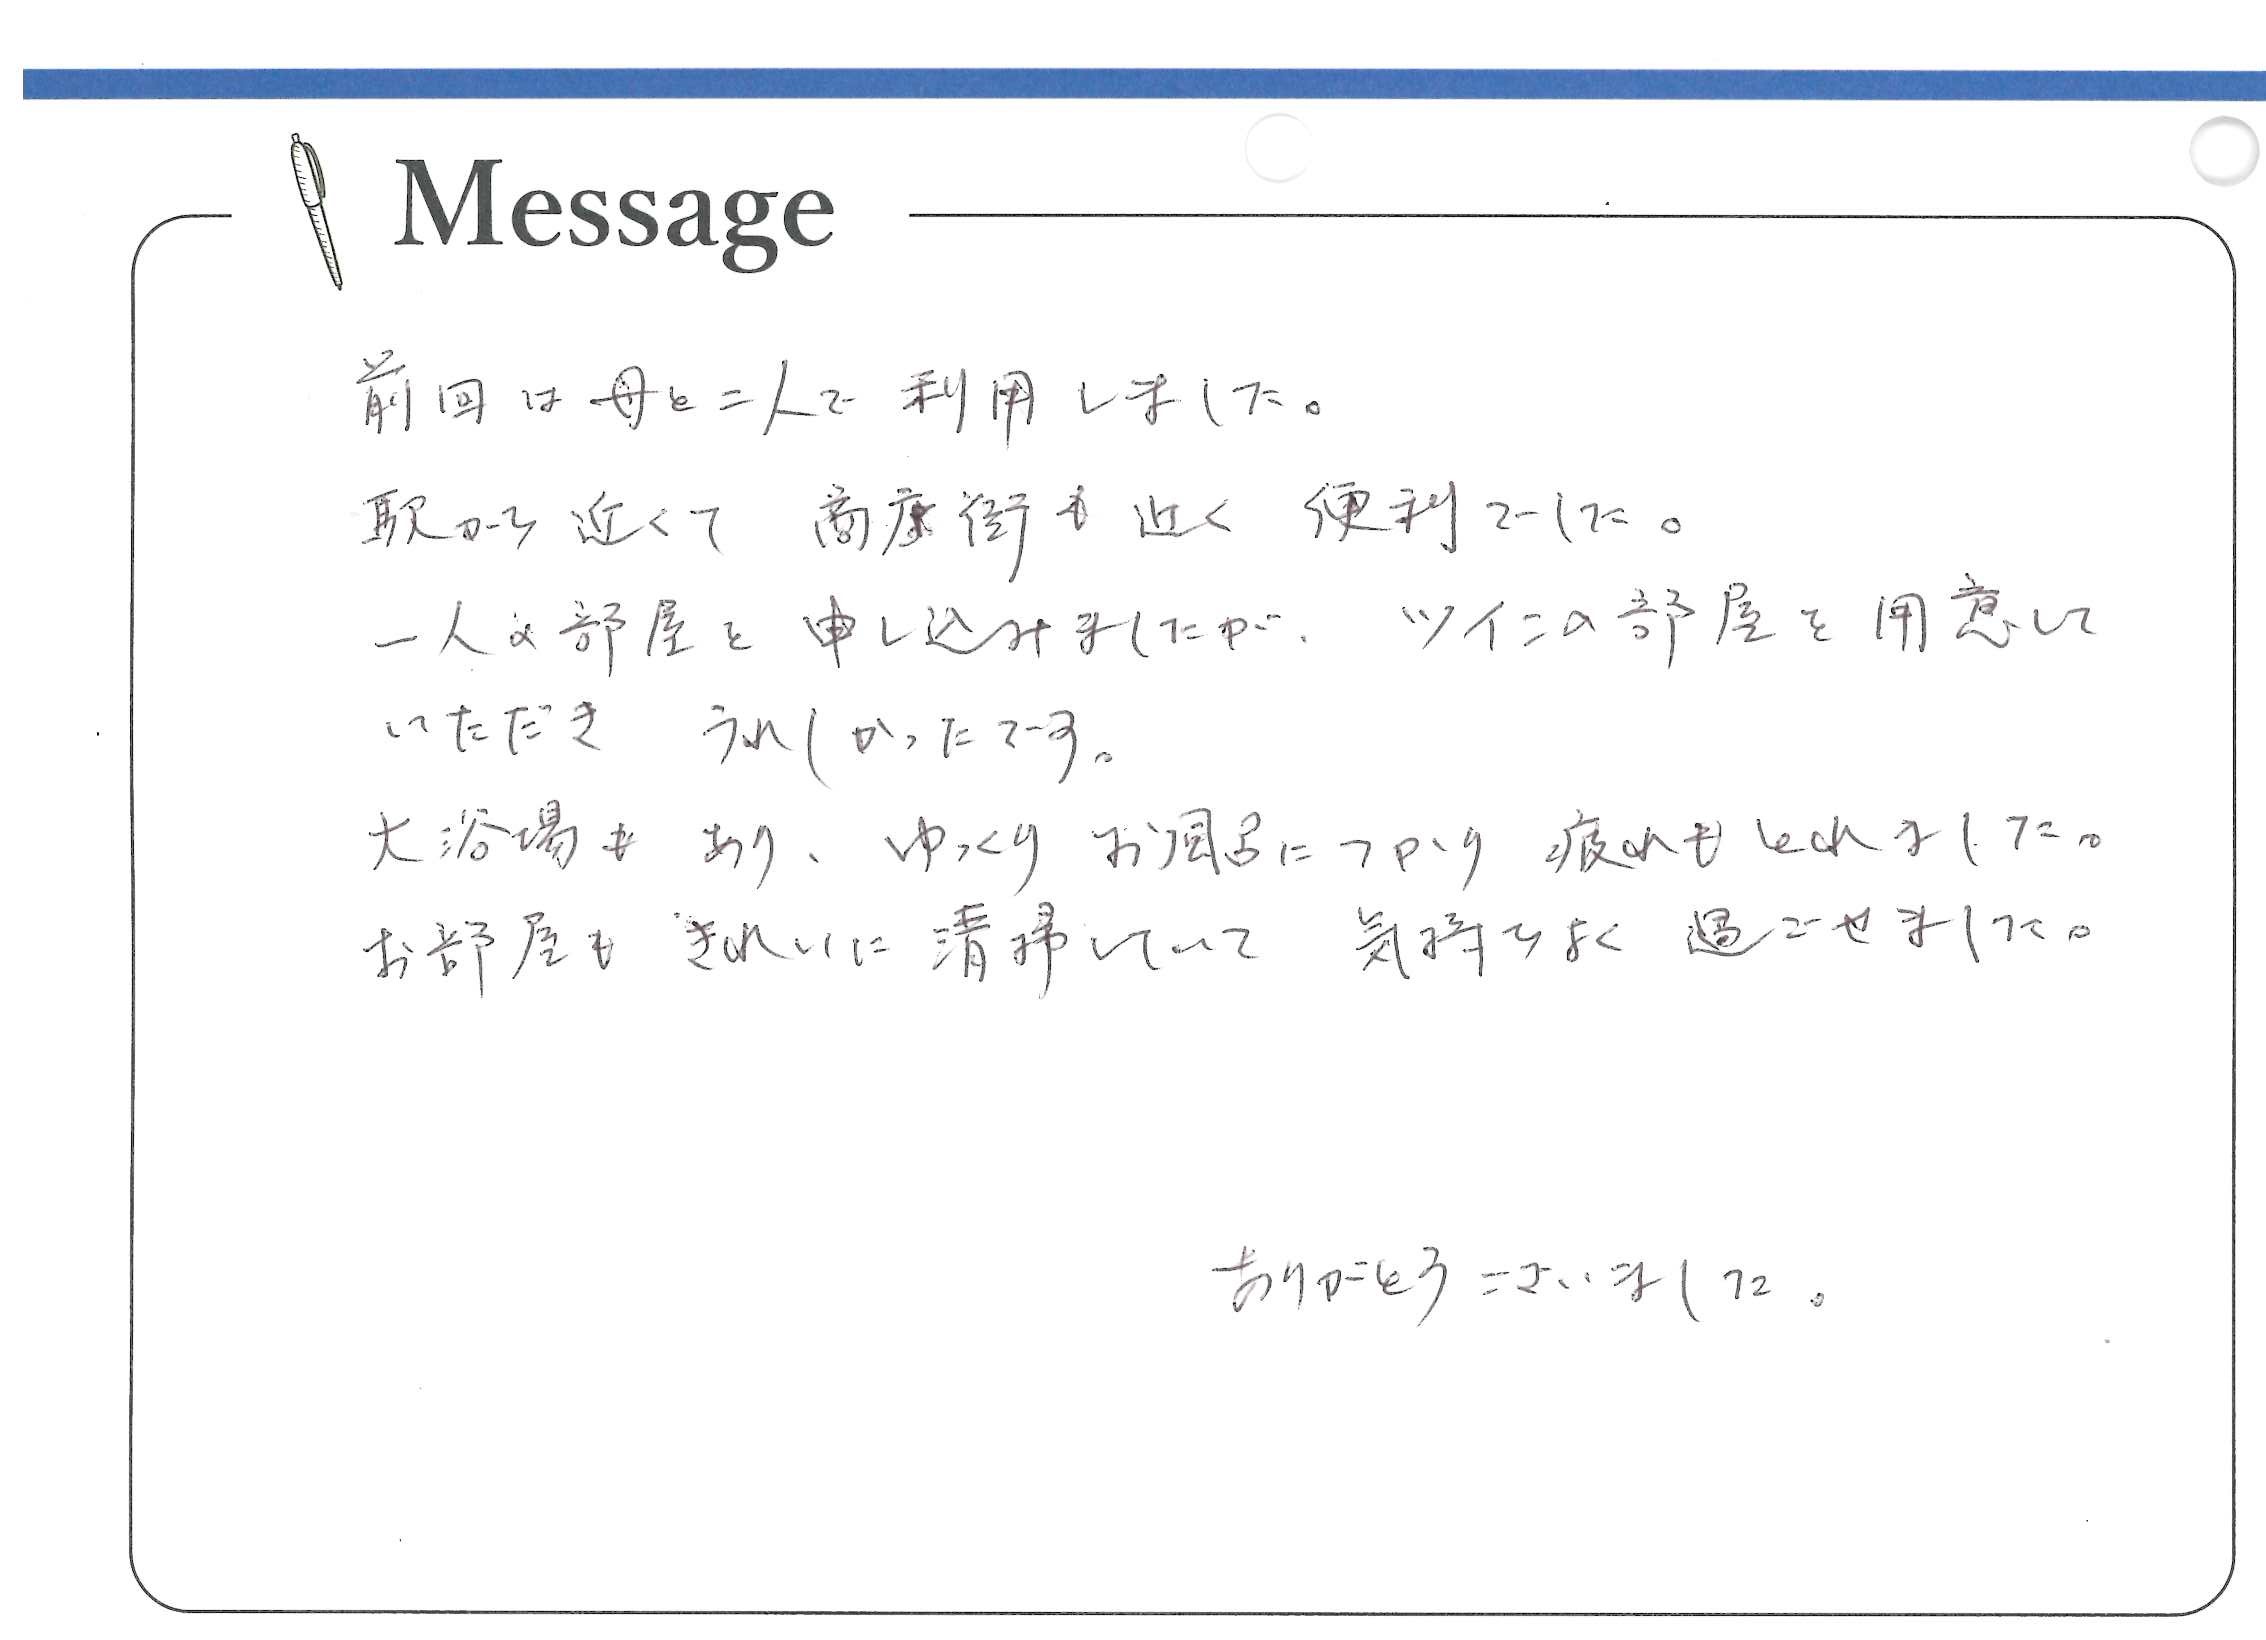 Message
前回は母と二人で利用しました。
駅から近くて 商店街も近く 便利でした。
一人の部屋を申し込みましたが、ツインの部屋を用意して
いただき うれしかったです。
大浴場もあり、ゆっくりお風呂につかり 疲れもとれました。
お部屋もきれいに清掃していて 気持ちよく過ごせました。
ありがとうございました。